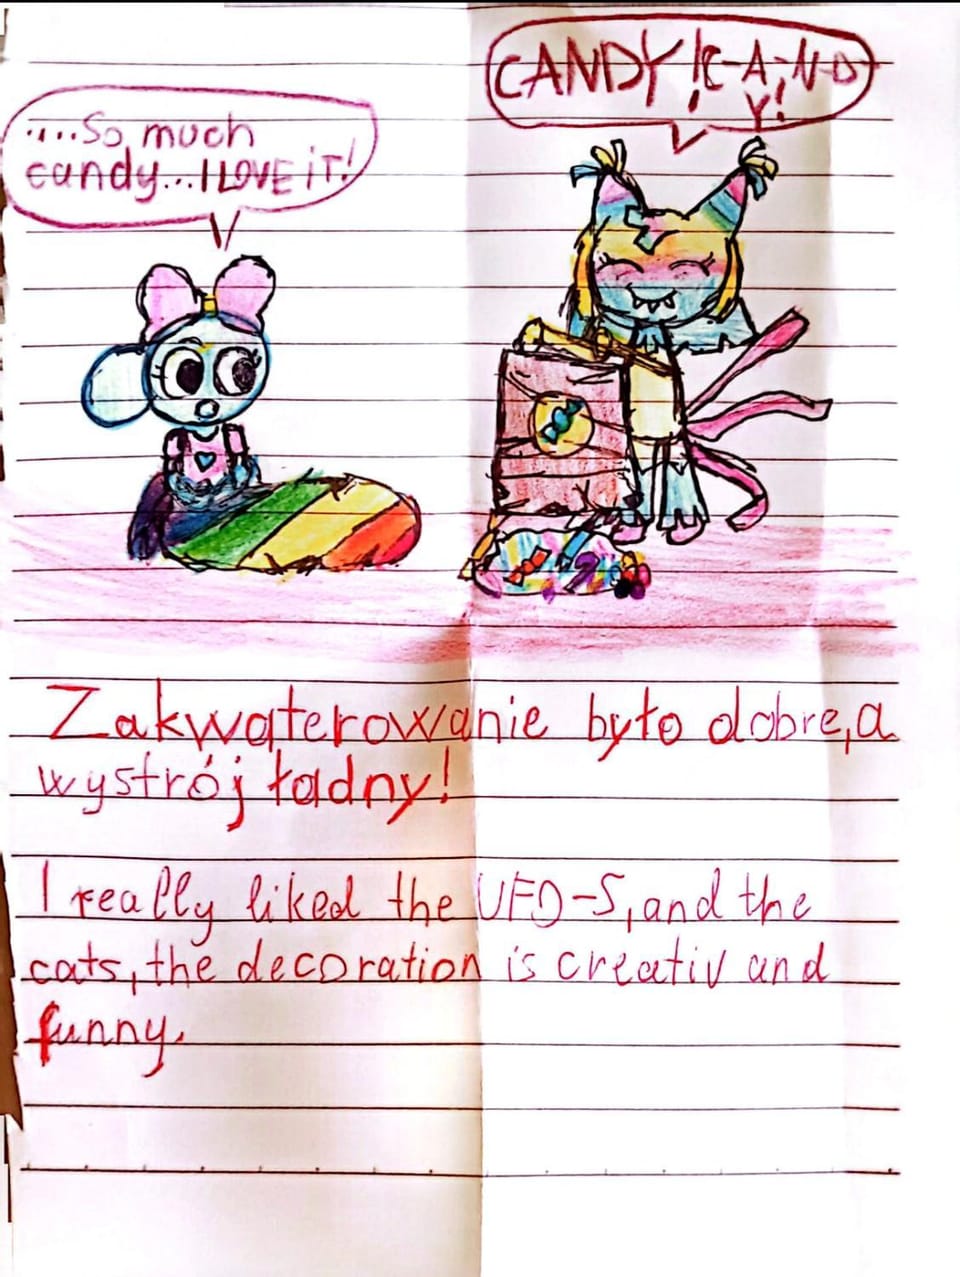 ....So much
candy...I LOVE iT!
CANDY!C-A-N-D
Y!
Zakwaterowanie było dobre, a
wystrój ładny!
I really liked the UFO-S, and the
cats, the decoration is creativ and
funny.